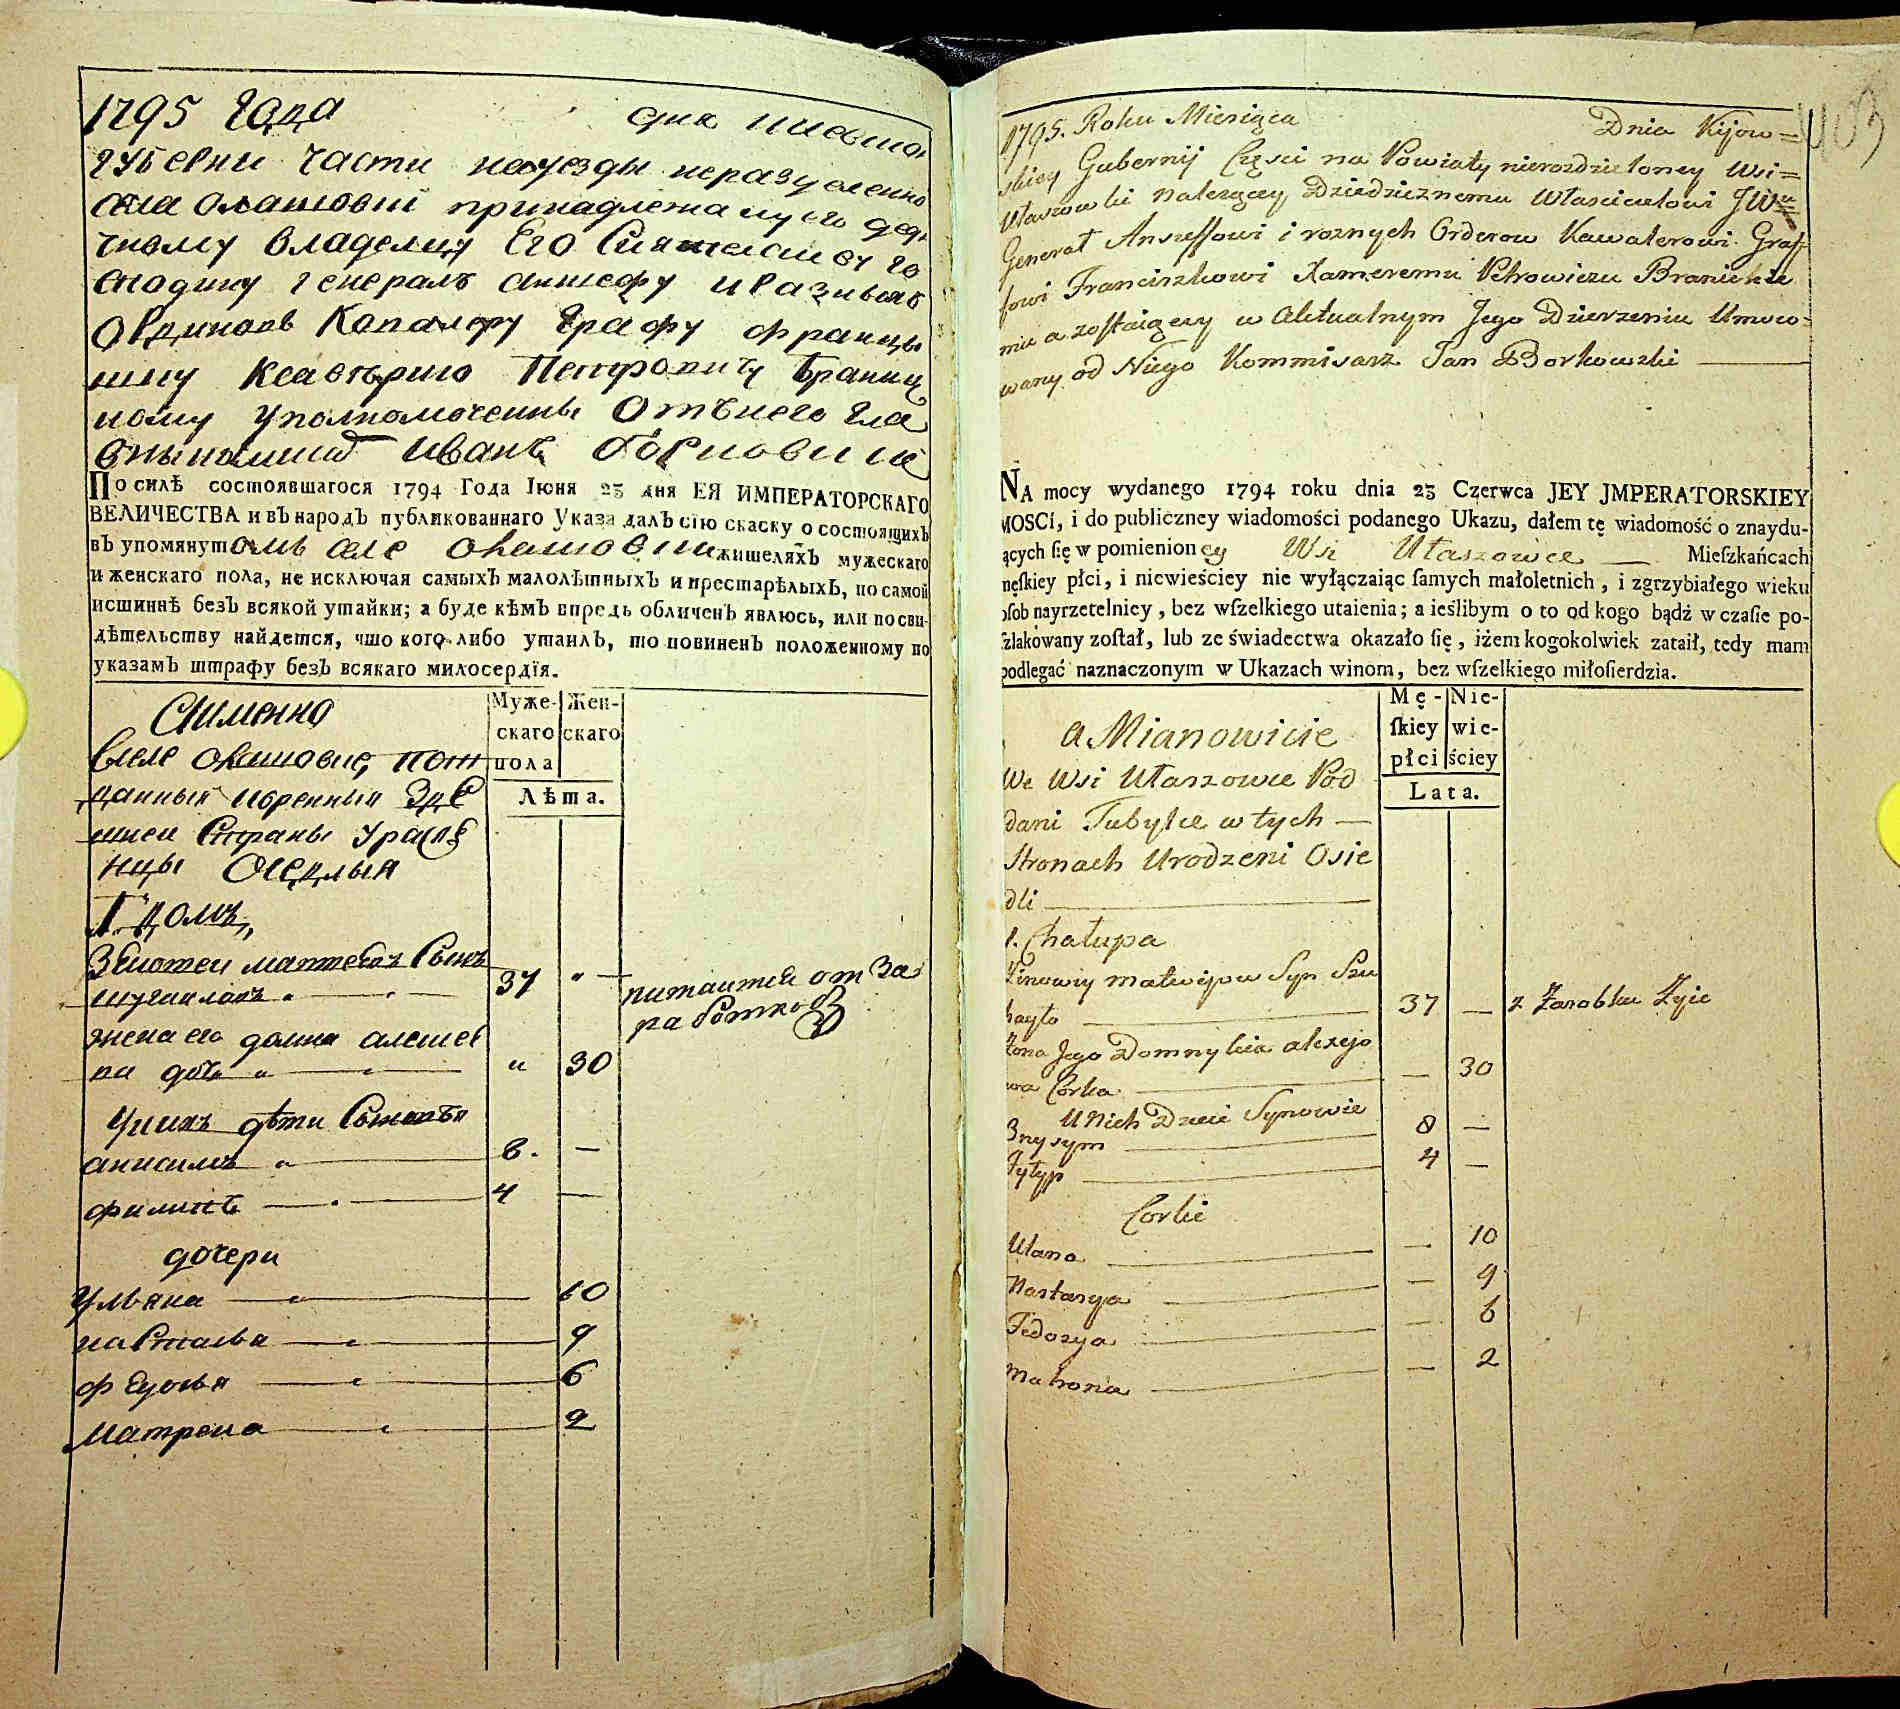 1795 Года дня Киевской
губерни части науезды неразделенно
села Олашовки принадлежащего дед
чному владелцу Его Сиятелству го
сподину генералъ аншефу и разныхъ
Ординовъ Кавалеру Графу Францы
шку Ксаверию Петровичу Браниц
кому уполномоченны Отънего Гла
Иванъ Борковски
По силѣ состоявшагося 1794 Года Iюня 23 дня ЕЯ ИМПЕРАТОРСКАГО
ВЕЛИЧЕСТВА и въ народъ публикованнаго Указа далъ сїю скаску о состоящихъ
въ упомянутомъ селе Олашовки жителяхъ мужескаго
и женскаго пола, не исключая самыхъ малолѣтныхъ и престарѣлыхъ, по самой
истиннѣ безъ всякой утайки; а буде кѣмъ впредь обличенъ явлюсь, или по сви-
дѣтельству найдется, что кого либо утаилъ, то повиненъ положенному по
указамъ штрафу безъ всякаго милосердїя.
Муже- Жен-
Аименно
скаго скаго
Вселе Олашовке Под пола
данныя коренныя Зде Лѣта.
шнеи Страны Урас
нцы Оседлыя
1 домъ
Зеновеи матвеевъ Сынъ
37 " питаитца от За
работков
жена его домна алексеев
на дочь " 30
Уних дѣти Сыновья
анисимъ 8. —
филипъ 4 —
дочери
Ульяна 10
настасья 9
федосья 6
Матрена 2
409
1795. Roku Miesiąca Dnia Kijow=
skiey Gubernij Częsci na Powiaty nierozdzieloney Wsi=
Ułaszowki należącey Dziedzicznemu Właścicielowi JW
Generał Anszeffowi i roznych Orderow Kawalerowi Graf=
fowi Franciszkowi Xaweremu Petrowiczu Branickie
mu a zostaiącey w Aktualnym Jego Dzierzeniu Umoco=
wany od Niego Kommisarz Jan Borkowski
NA mocy wydanego 1794 roku dnia 23 Czerwca JEY JMPERATORSKIEY
MOSCI, i do publiczney wiadomości podanego Ukazu, dałem tę wiadomość o znaydu-
iących ſię w pomienioney Wsi Ułaszowce — Mieſzkańcach
męſkiey płci, i niewieściey nie wyłączaiąc ſamych małoletnich, i zgrzybiałego wieku
osob nayrzetelniey, bez wſzelkiego utaienia; a ieślibym o to od kogo bądź w czaſie po-
ſzlakowany zoſtał, lub ze świadectwa okazało ſię, iżem kogokolwiek zataił, tedy mam
podlegać naznaczonym w Ukazach winom, bez wſzelkiego miłoſierdzia.
Mę- Nie-
a Mianowicie ſkiey wie-
płci ściey
We Wsi Ułaszowce Pod Lata.
dani Tubylce w tych —
Stronach Urodzeni Osie
dli
1. Chałupa
Zinowiy Matwijow Syn Szu
hayło 37 — z Zarobku Zyie
Zona Jego Domnykia alexejo
wa Corka — 30
U Nich Dzieci Synowie
Onysym 8 —
Fyłyp 4 —
Corki
Ulana — 10
Nastasya — 9
Fedosya — 6
Matrona — 2